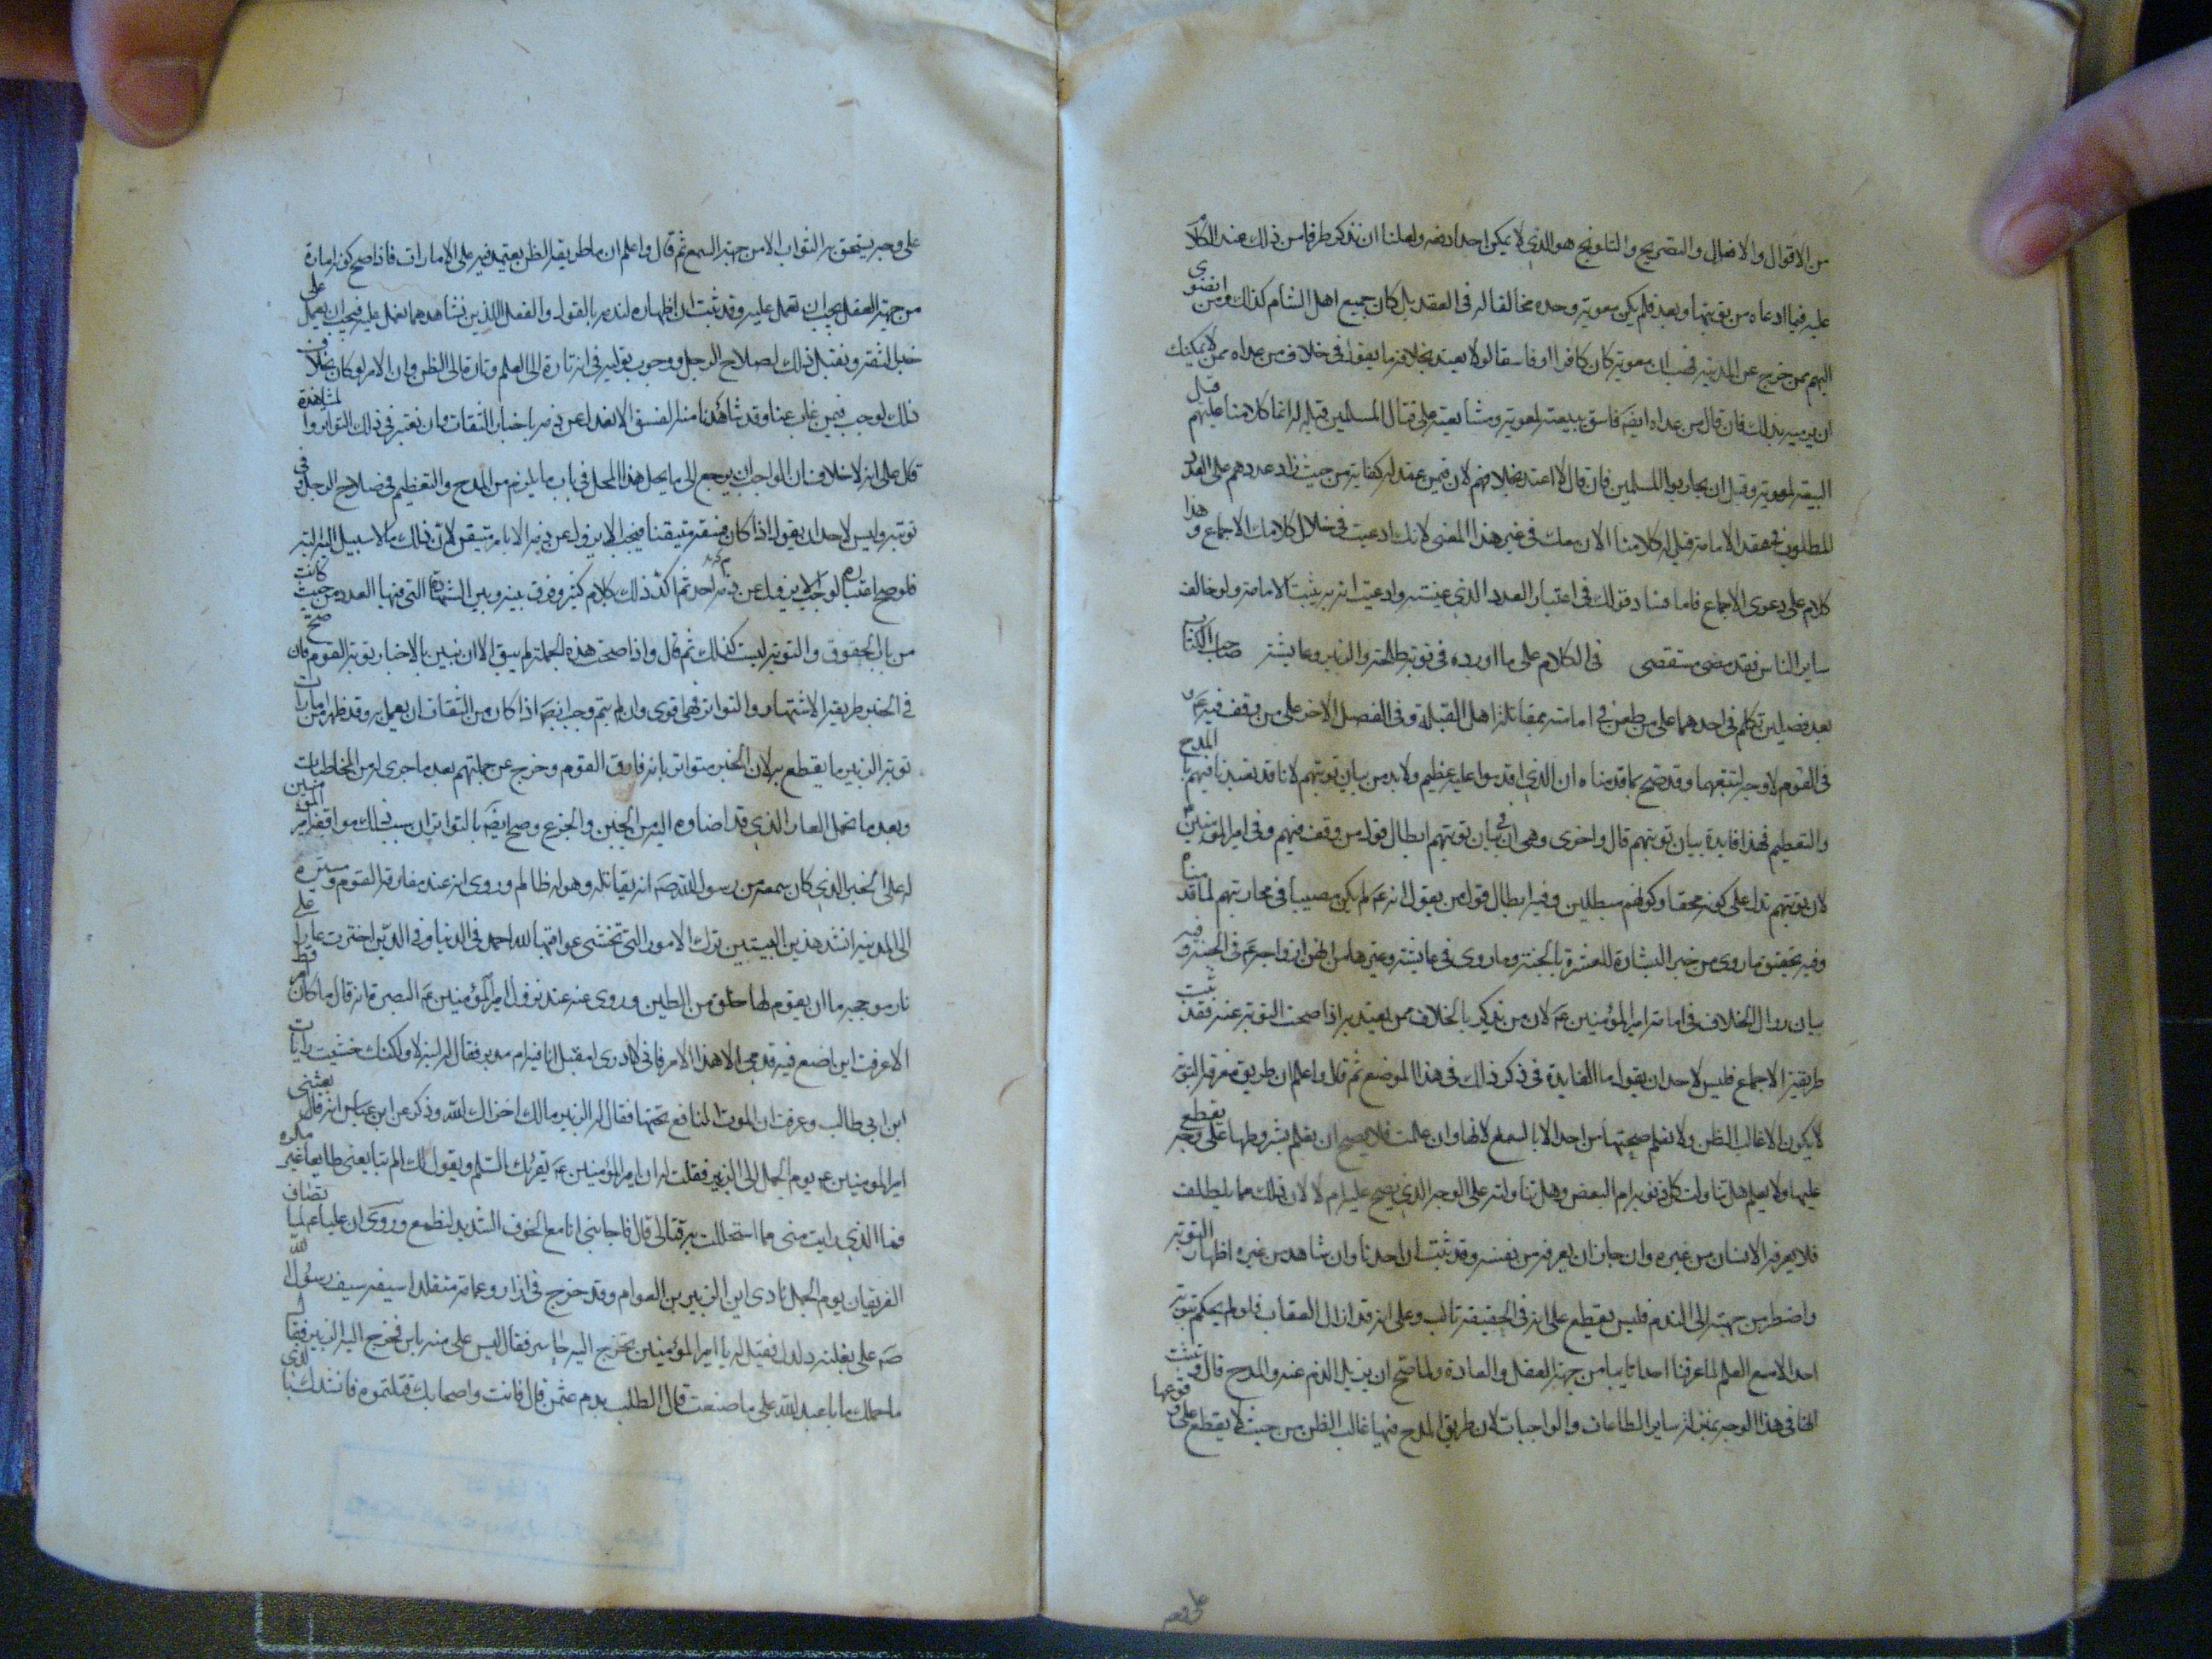 من الاقوال والافعال والتصريح والتلويح هو الذي لا يمكن احدا دفعه ولعلنا ان نذكر طرفا من ذلك عند الكلام
عليه فيما ادعاه من توبتهما وبعد فلم يكن معوية وحده مخالفا له في العقد بل كان جميع اهل الشام كذلك ومن انضوى
اليهم ممن خرج عن المدينة فهب ان معوية كان كافرا او فاسقا لا يعتد بخلافه ما يقول في خلاف من عداه ممن لا يمكنك
ان يرميه بذلك فان قال من عداه ايضا فاسق ببيعته لمعوية ومشايعته على قتال المسلمين قيل له انما كلامنا عليهم قبل
البيعة لمعوية وقبل ان يحاربوا المسلمين فان قال لا اعتد بخلافهم لان فيمن عقد له كفاية من حيث زاد عددهم على العدد
المطلوب في عقد الامامة قيل له كلامنا الان معك في غير هذا المعنى لانك ادعيت في خلال كلامك الاجماع وهذا
كلام على دعوى الاجماع فاما فساد قولك في اعتبار العدد الذي عينته وادعيت انه به يثبت الامامة ولو خالف
ساير الناس فقد مضى مستقصى في الكلام على ما اورده في توبة طلحة والزبير وعايشة صاحب الكتاب
بعد فصلين تكلم في احدهما على من طعن في امامته بمقاتلة اهل القبلة وفي الفصل الاخر على من وقف فيه ع و
في القوم لا وجه لتتبعهما وقد صح بما قدمناه ان الذي اقدموا عليه عظيم ولا بد من بيان توبتهم لانا قد تعبدنا فيهم بالمدح
والتعظيم فهذا فايدة بيان توبتهم قال واخرى وهي ان في بيان توبتهم ابطال قول من وقف فيهم وفي امير المؤمنين
لان توبتهم تدل على كونه محقا وكونهم مبطلين وفيه ابطال قول من يقول انه ع لم يكن مصيبا في محاربتهم لما قدمناه
وفيه تحقيق ما روى من خبر البشارة للعشرة بالجنة وما روى في عايشة وغيرها من انهن ازواجه ع في الجنة وفيه
بيان زوال الخلاف في امامة امير المؤمنين ع لان من يذكر بالخلاف ممن يعتد به اذا صحت التوبة عنه فقد ثبت
طريقة الاجماع فليس لاحد ان يقول ما الفايدة في ذكر ذلك في هذا الموضع ثم قال واعلم ان طريق معرفة التوبة
لا يكون الا غالب الظن ولا نعلم صحتها من احد الا بالسمع لانها وان علمت فلا يصح ان يعلم بشروطها على وجه يقطع
عليها ولا يعلم هل تناولت كل ذنوبه ام البعض وهل تناولته على الوجه الذي يصح عليه ام لا لان ذلك مما يلطف
فلا يعرفه الانسان من غيره وان جاز ان يعرفه من نفسه وقد ثبت ان احدنا وان شاهد من غيره اظهار التوبة
واضطر من جهته الى الندم فليس يقطع على انه في الحقيقة تائب وعلى انه قد ازال العقاب فلو لم يحكم بتوبة
احد الا مع العلم لما عرفنا احدا تايبا من جهة العقل والعادة ولما صح ان يزيل الذم عنه والمدح قال وثبت
انها في هذا الوجه بمنزلة ساير الطاعات والواجبات لان طريق المدح فيها غالب الظن من حيث لا يقطع على وقوعها
على وجه
على وجه يستحق به الثواب الا من جهة السمع ثم قال واعلم ان ما طريقه الظن يعتمد فيه على الامارات فاذا صح كونه امارة
من جهة العقل يجب ان نعمل عليه وقد ثبت ان اظهاره لندمه بالقول والفعل اللذين نشاهدهما نعمل عليه فيجب ان يعمل على
خبر الثقة ونقبل ذلك لصلاح الرجل ووجوب توليه في انه تارة الى العلم وتارة الى الظن وان الامر لو كان بخلاف
ذلك لوجب فيمن غاب عنا وقد شاهدنا منه الفسق الا نعدل عن ذمه باخبار الثقات وان نعتبر في ذلك التواتر والمشاهدة
فكل على انه لا خلاف ان الواجب ان يرجع الى ما يحل هذا المحل في باب ما يلزم من المدح والتعظيم في صلاح الرجل وفي
توبته وليس لاحد ان يقول اذا كان فسقه متيقنا فيجب الا يزول عن ذمه الا بامر متيقن لان ذلك مما لا سبيل اليه البتة
فلو صح اعتباره لوجب الا يزول عن ذم احد ثم اكد ذلك بكلام كثير وفرق بينه وبين الشهادة التي فيها العدد من حيث كانت
من باب الحقوق والتوبة ليست كذلك ثم قال واذا صحت هذه الجملة لم يبق الا ان نبين بالاخبار توبة القوم فان صح
في الخبر طريقة الاشتهار والتواتر فهي اقوى وان لم يتم وجب ايضا اذا كان من الثقات ان يعمل به وقد ظهر من امارات
توبة الزبير ما يقطع به لان الخبر متواتر بانه فارق القوم وخرج عن جملتهم بعد ما جرى له من المخاطبات
وبعد ما تحمل العار الذي قد اضاوه اليه من الجبن والجزع وصح ايضا بالتواتر ان سبب ذلك مواقفة امير المؤمنين
له على الخبر الذي كان سمعه من رسول الله صه انه يقاتله وهو له ظالم وروى انه عند مفارقة القوم ومسيره
الى المدينة انشد هذين البيتين ترك الامور التي تخشى عواقبها لله احمد في الدنيا وفي الدين اخترت عارا على
نار موججة ما ان يقوم لها خلق من الطين وروى عنه عند نزول امير المؤمنين ع البصرة انه قال ما كان امر قط
الا عرفت اين اضع فيه قدمي الا هذا الامر فاني لا ادري امقبل انا فيه ام مدبر فقال له ابنه لا ولكنك خشيت رايات
ابن ابي طالب وعرفت ان الموت الناقع تحتها فقال له الزبير مالك اخزاك الله وذكر عن ابن عباس انه قال بعثني
امير المومنين ع يوم الجمل الى الزبير فقلت له ان امير المؤمنين ع يقرئك السلم ويقول لك الم تبايعني طايعا غير مكره
فما الذي رايت مني مما استحللت به قتالي قال فاجابني انا مع الخوف الشديد لنطمع وروى ان عليا ع لما تصاف
الفريقان يوم الجمل نادى اين الزبير بن العوام وقد خرج في ازار وعمامة متقلدا سيفه سيف رسول الله
صه على بغلته دلدل فقيل له يا امير المؤمنين تخرج اليه حاسر فقال ليس على منه باس فخرج اليه الزبير فقال
ما حملك يا ابا عبد الله على ما صنعت قال الطلب بدم عثمن قال فانت واصحابك قتلتموه فانشدك بالذي